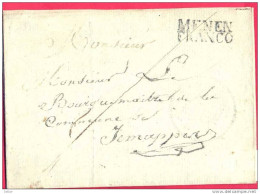 MENEN
FRANCO
Monsieur
Monsieur Le
Bourguemaitre de la
Commune de
Jemappes